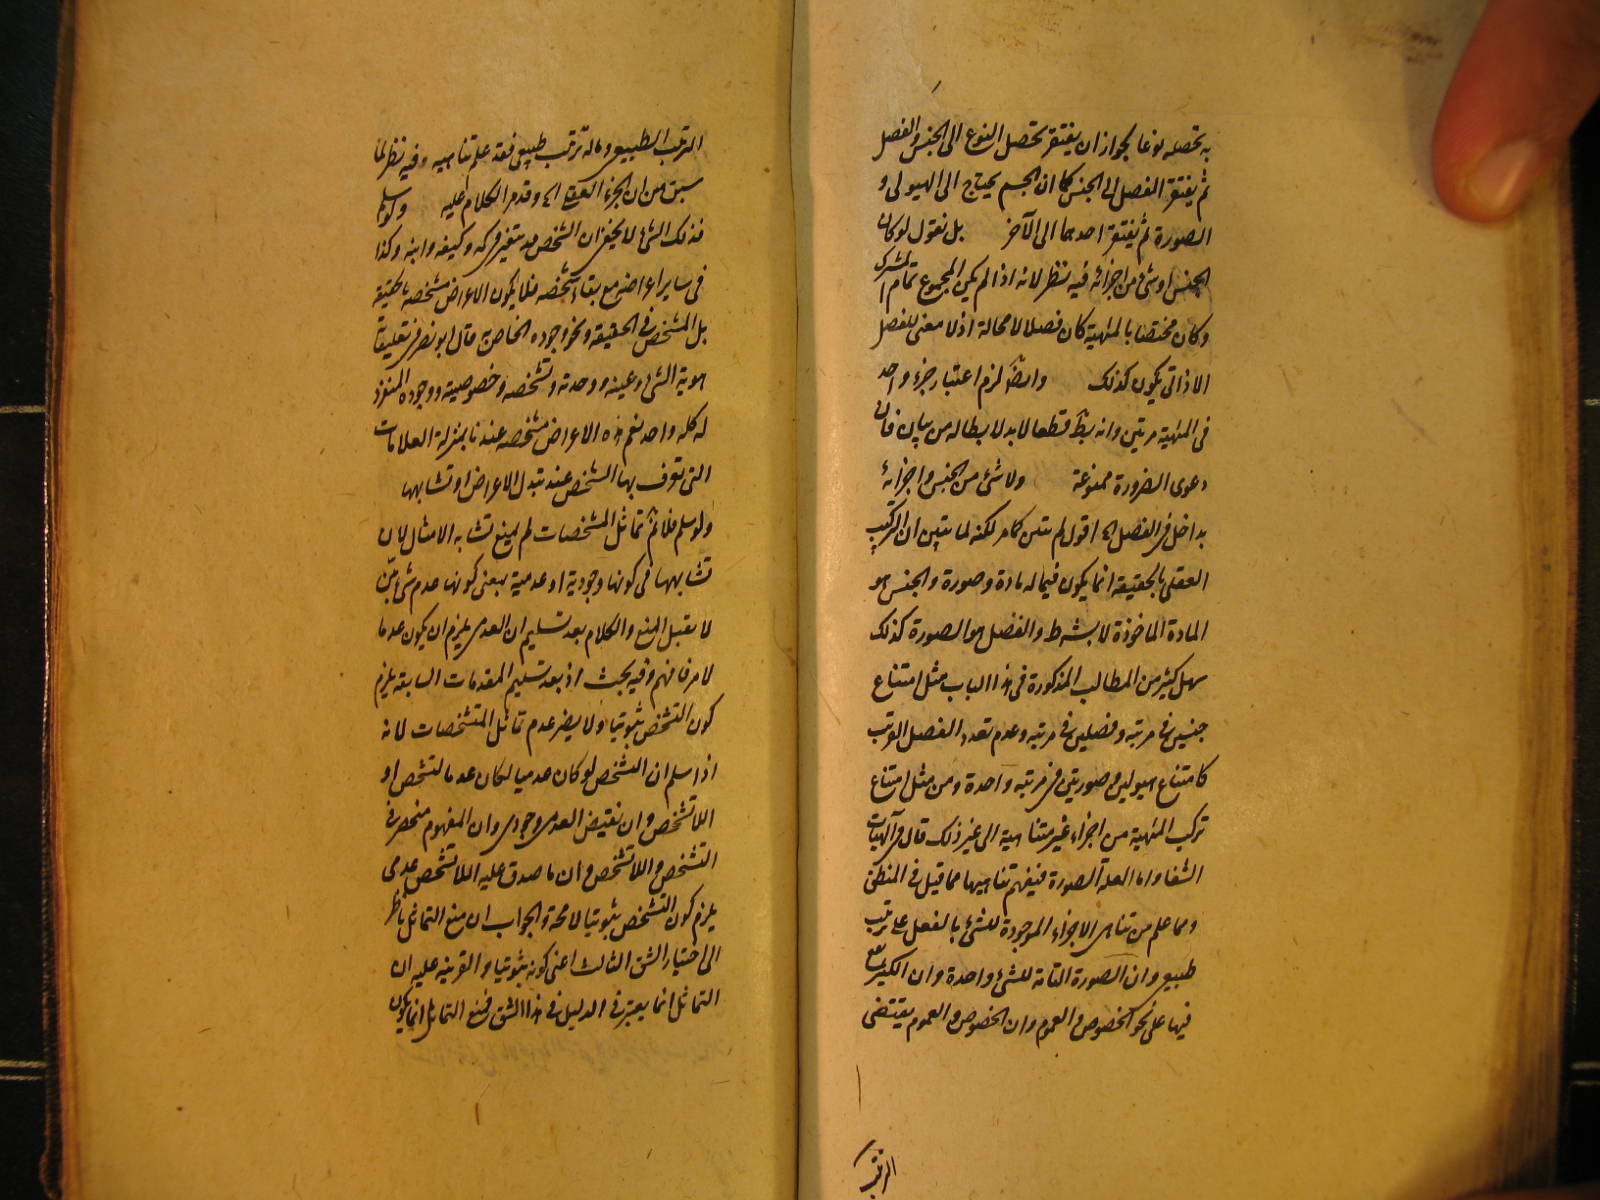 به تحصله نوعا لجواز ان يفتقر تحصل النوع الى الجنس والفصل
ثم يفتقر الفصل الى الجنس كما ان الجسم يحتاج الى الهيولى و
الصورة ثم يفتقر احدهما الى الآخر بل نقول لو كان
الجنس او شئ من اجزائه فيه نظر لانه اذا لم يكن المجموع تمام المشترك
وكان مختصا بالمهية كان فصلا لا محالة اذ لا معنى للفصل
الا ذاتى يكون كذلك وايضا لزم اعتبار جزء واحد
فى المهية مرتين وانه بط قطعا لا بد لابطاله من بيان فان
دعوى الضرورة ممنوعة ولا شئ من الجنس واجزائه
بداخل فى الفصل اه اقول لم يتبين كما مر لكنه لما تبين ان التركيب
العقلى بالحقيقة انما يكون فيما له مادة وصورة والجنس هو
المادة الماخوذة لا بشرط والفصل هو الصورة كذلك
سهل كثير من المطالب المذكورة فى هذا الباب مثل امتناع
جنسين فى مرتبه وفصلين فى مرتبه وعدم تعدد الفصل القريب
كامتناع هيولين وصورتين فى مرتبه واحدة ومن مثل امتناع
تركب المهية من اجزاء غير متناهية الى غير ذلك قال فى آلهيات
الشفا واما العلة الصورة فيفهم تناهيها مما قيل فى المنطق
ومما علم من تناهى الاجزاء الموجودة للشئ بالفعل على ترتيب
طبيعى وان الصورة التامة للشئ واحدة وان الكثير يقع
فيها على نحو الخصوص والعموم وان الخصوص والعموم يقتضى
الترتيب
الترتب الطبيعى وما له ترتب طبيعى فقد علم تناهيه وفيه نظر لما
سبق من ان الجزء العقلى اه وقد مر الكلام عليه ولو سلم
فذلك الشئ لا يخفى ان الشخص قد يتغير فى كمه وكيفه واينه وكذا
فى ساير اعراضه مع بقاء تشخصه فلا يكون الاعراض مشخصة بالحقيقة
بل المشخص فى الحقيقة هو نحو وجوده الخاص قال ابو نصر فى تعليقاته
هوية الشئ وعينه ووحدته وتشخصه وخصوصيته ووجوده المنفرد
له كله واحد نعم هذه الاعراض مشخصه عندنا بمنزلة العلامات
التى تعرف بها الشخص عند تبدل الاعراض او تشابهها
ولو سلم فلا ثم تماثل المشخصات لم يمنع تشابه الامثال لان
تشابهها فى كونها وجودية او عدمية بمعنى كونها عدم شئ
لا يقبل المنع والكلام بعد تسليم ان العدمى يلزم ان يكون عدما
لامر فافهم وفيه بحث اذ بعد تسليم المقدمات السابقة يلزم
كون التشخص ثبوتيا ولا يضر عدم تماثل المتشخصات لانه
اذا سلم ان التشخص لو كان عدميا لكان عدما لتشخص او
اللا تشخص وان نقيض العدمى وجودى وان المفهوم منحصر فى
التشخص واللا تشخص وان ما صدق عليه اللا تشخص عدمى
يلزم كون التشخص ثبوتيا لا محة والجواب ان منع التماثل ناظر
الى اختيار الشق الثالث اعنى كونه ثبوتيا والقرينه عليه ان
التماثل انما يعتبر فى الدليل فى هذا الشق فمنع التماثل انما يكون